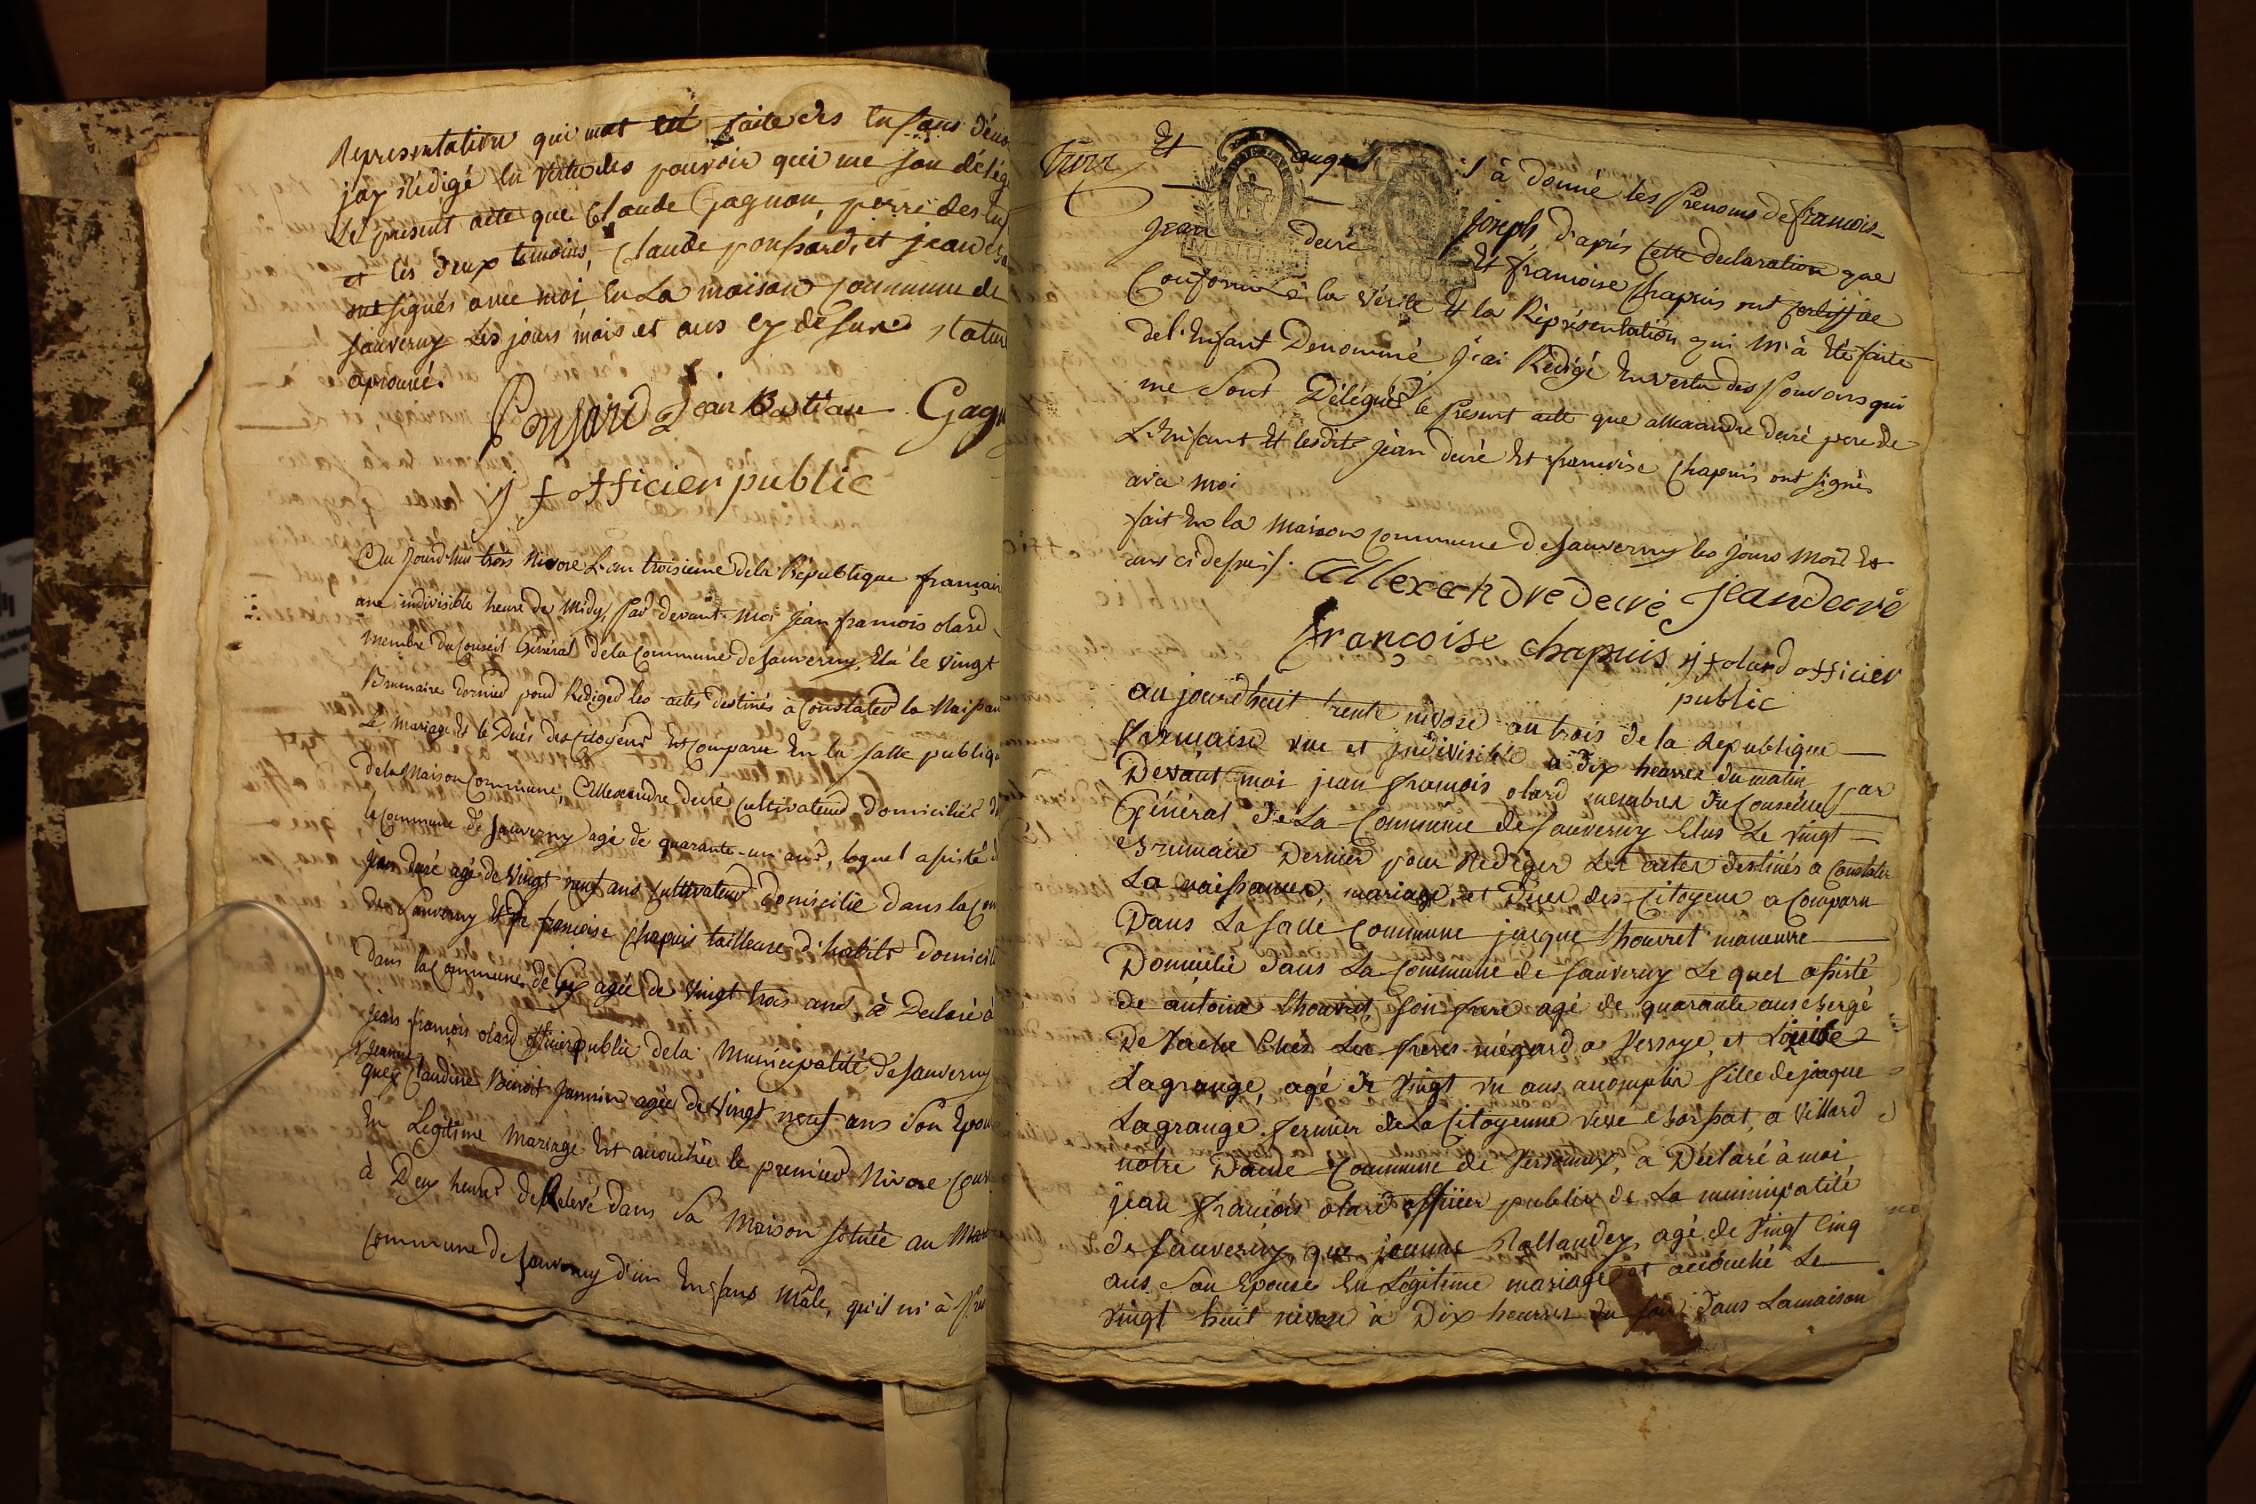 Representation qui mat été faite des Enfans déno
jay Rédigé en vertu des pouvoir qui me son délég
Le present acte que Claude Gagnon, perre des Enf
et les deux temoins, Claude ponsard, et jean
ont signés avec moi En La maison commune de
sauverny Les jours mois et ans cy desures statur
aprouvé.
Ponsard Jean Bastian Gagn
j f officier public
Au jourd'hui trois Nivose L'an troisieme de la Republique français
une indivisible heure de Midy, Par devant Moi Jean francois olard
membre du Conseil Général de la Commune de Sauverny, Elû le vingt
Brumaire dernier pour Rediger les actes destinés à Constater la Naissan
Le Mariage et le Décés des citoyens Est comparu En la salle publiqu
de la Maison Commune, Allexandre devré Cultivateur domiciliée d
la Commune de Sauverny agé de quarante-un ans, lequel assisté d
Jean devré agé de Vingt neuf ans Cultivateur domicilié dans la Com
de Sauverny et de francoise Chapuis tailleuse d'habits domicili
dans la Commune de Gex agée de Vingt trois ans, à Declaré à
Jean francois olard officier public de la Municipalité de Sauverny
jeanne
que Claudine Benoit Jannin agée de Vingt neuf ans Son Epou
En Legitime Mariage Est accouchée le premier Nivose Cour
à Deux heures de Relevé dans Sa Maison située au
Commune de Sauverny d'un Enfans Mâle, qu'il m'à Pre
Et auquel il à donné les Prenoms de francois
Joseph, d'après Cette declaration que
Jean devré Et francoise Chapuis ont certiffiée
Conforme à la vérité Et la Représentation qui M'à Eté faite
de l'Enfant Denommé, J'ai Rédigé En vertu des Pouvoirs qui
me Sont Délégués le Present acte que allexandre devré pere de
L'Enfant Et lesdits Jean devré Et francoise Chapuis ont signés
avec moi
fait En la Maison Commune de Sauverny les jours Mois Et
ans ci dessus.
allexandre devré Jean devré
françoise chapuis j f olard officier
public
au jourdhuit trente nivose an trois de la Republique
francaise une et indivisible à dix heures du matin par
Devant moi jean francois olard membre du Conseille
Général de La Commune de sauverny Elus Le vingt
Brumaire Dernier pour Rediger Les actes destinés a Constater
La naissance, mariage, et Déces des Citoyens a Comparu
Dans La salle Commune jacque Thouvret maneuvre
Domicilié dans La Commune de sauverny Le quel assisté
de antoine Thouvret son frere agé de quarante ans Bergé
De Vache Chés Les freres mégard a Versoye, et Louise
Lagrange, agé de vingt un ans accomplir fille de jacque
Lagrange fermier de La Citoyenne veve a Villard
notre Dame Commune de Versonnex, a Déclaré à moi
jean francois olard officier public de La municipatité
de sauverny, que jeanne Rollandey agé de vingt Cinq
ans son Epouse En Légitime mariage est accouché Le
vingt huit nivose à Dix heures du soir dans La maison